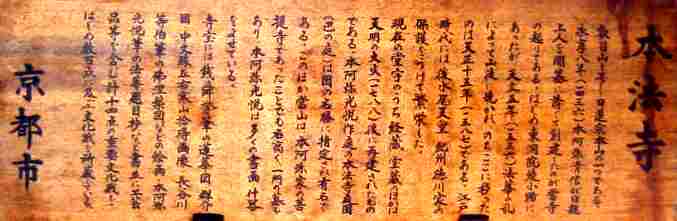 本法寺
叡昌山と号し、日蓮宗本山の一つである。
永享八年(一四三六)本阿弥清信が日親
上人を開基に請じて創建したのが当寺
の起りである。はじめ東洞院綾小路に
あったが、天文五年(一五三六)法華の乱
によって山徒に焼かれ、のちここに移った
のは天正十五年(一五八七)である。江戸
時代には後水尾天皇、紀州徳川家の
保護をうけて繁栄した。
現在の堂宇のうち経蔵、宝蔵のほかは
天明の大火(一七八八)後に再建されたもの
である。本阿弥光悦作庭の本法寺庭園
(巴の庭)は国の名勝に指定され有名で
ある。このほか当山は、本阿弥家の菩
提寺であったことでも名高く、一門の墓も
あり、本阿弥光悦は多くの書画、什器
をよせている。
寺宝には銭舜挙筆蓮華図、群介
図、中文殊左右寒山拾得画像、長谷川
等伯筆の佛涅槃図などの絵画、本阿弥
光悦筆の法華題目抄など書蹟並に工芸
品等を含む計十四点の重要文化財を
はじめ数百点に及ぶ文化財を所蔵している。
京都市